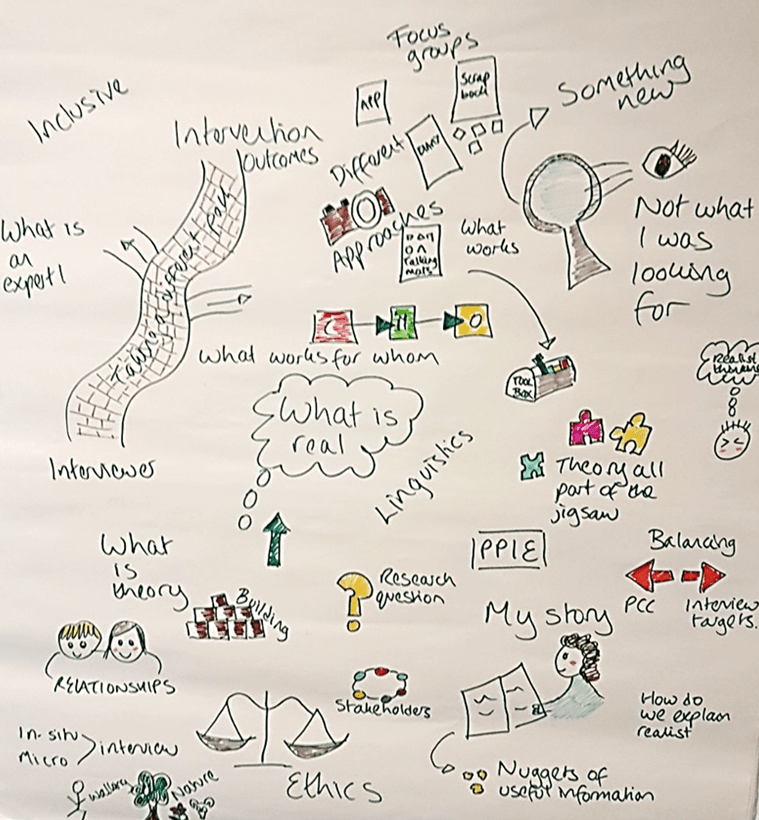 Focus
groups
Inclusive
Intervention
Outcomes
APP
Scrap
book
Diary
Something
new
Different
Approaches
What
works
Not what
I was
looking
for
What is
an
expert!
Taking a different path
C
M
O
What works for whom
TOOL
BOX
Realist
What is
real
Linguistics
Theory all
part of the
jigsaw
Interviewer
What
is
theory
Building
Research
question
PPIE
Balancing
PCC
Interview
targets.
My story
RELATIONSHIPS
Stakeholders
How do
we explain
realist
In-situ
Micro
interview
Ethics
Nuggets of
useful information
Nature